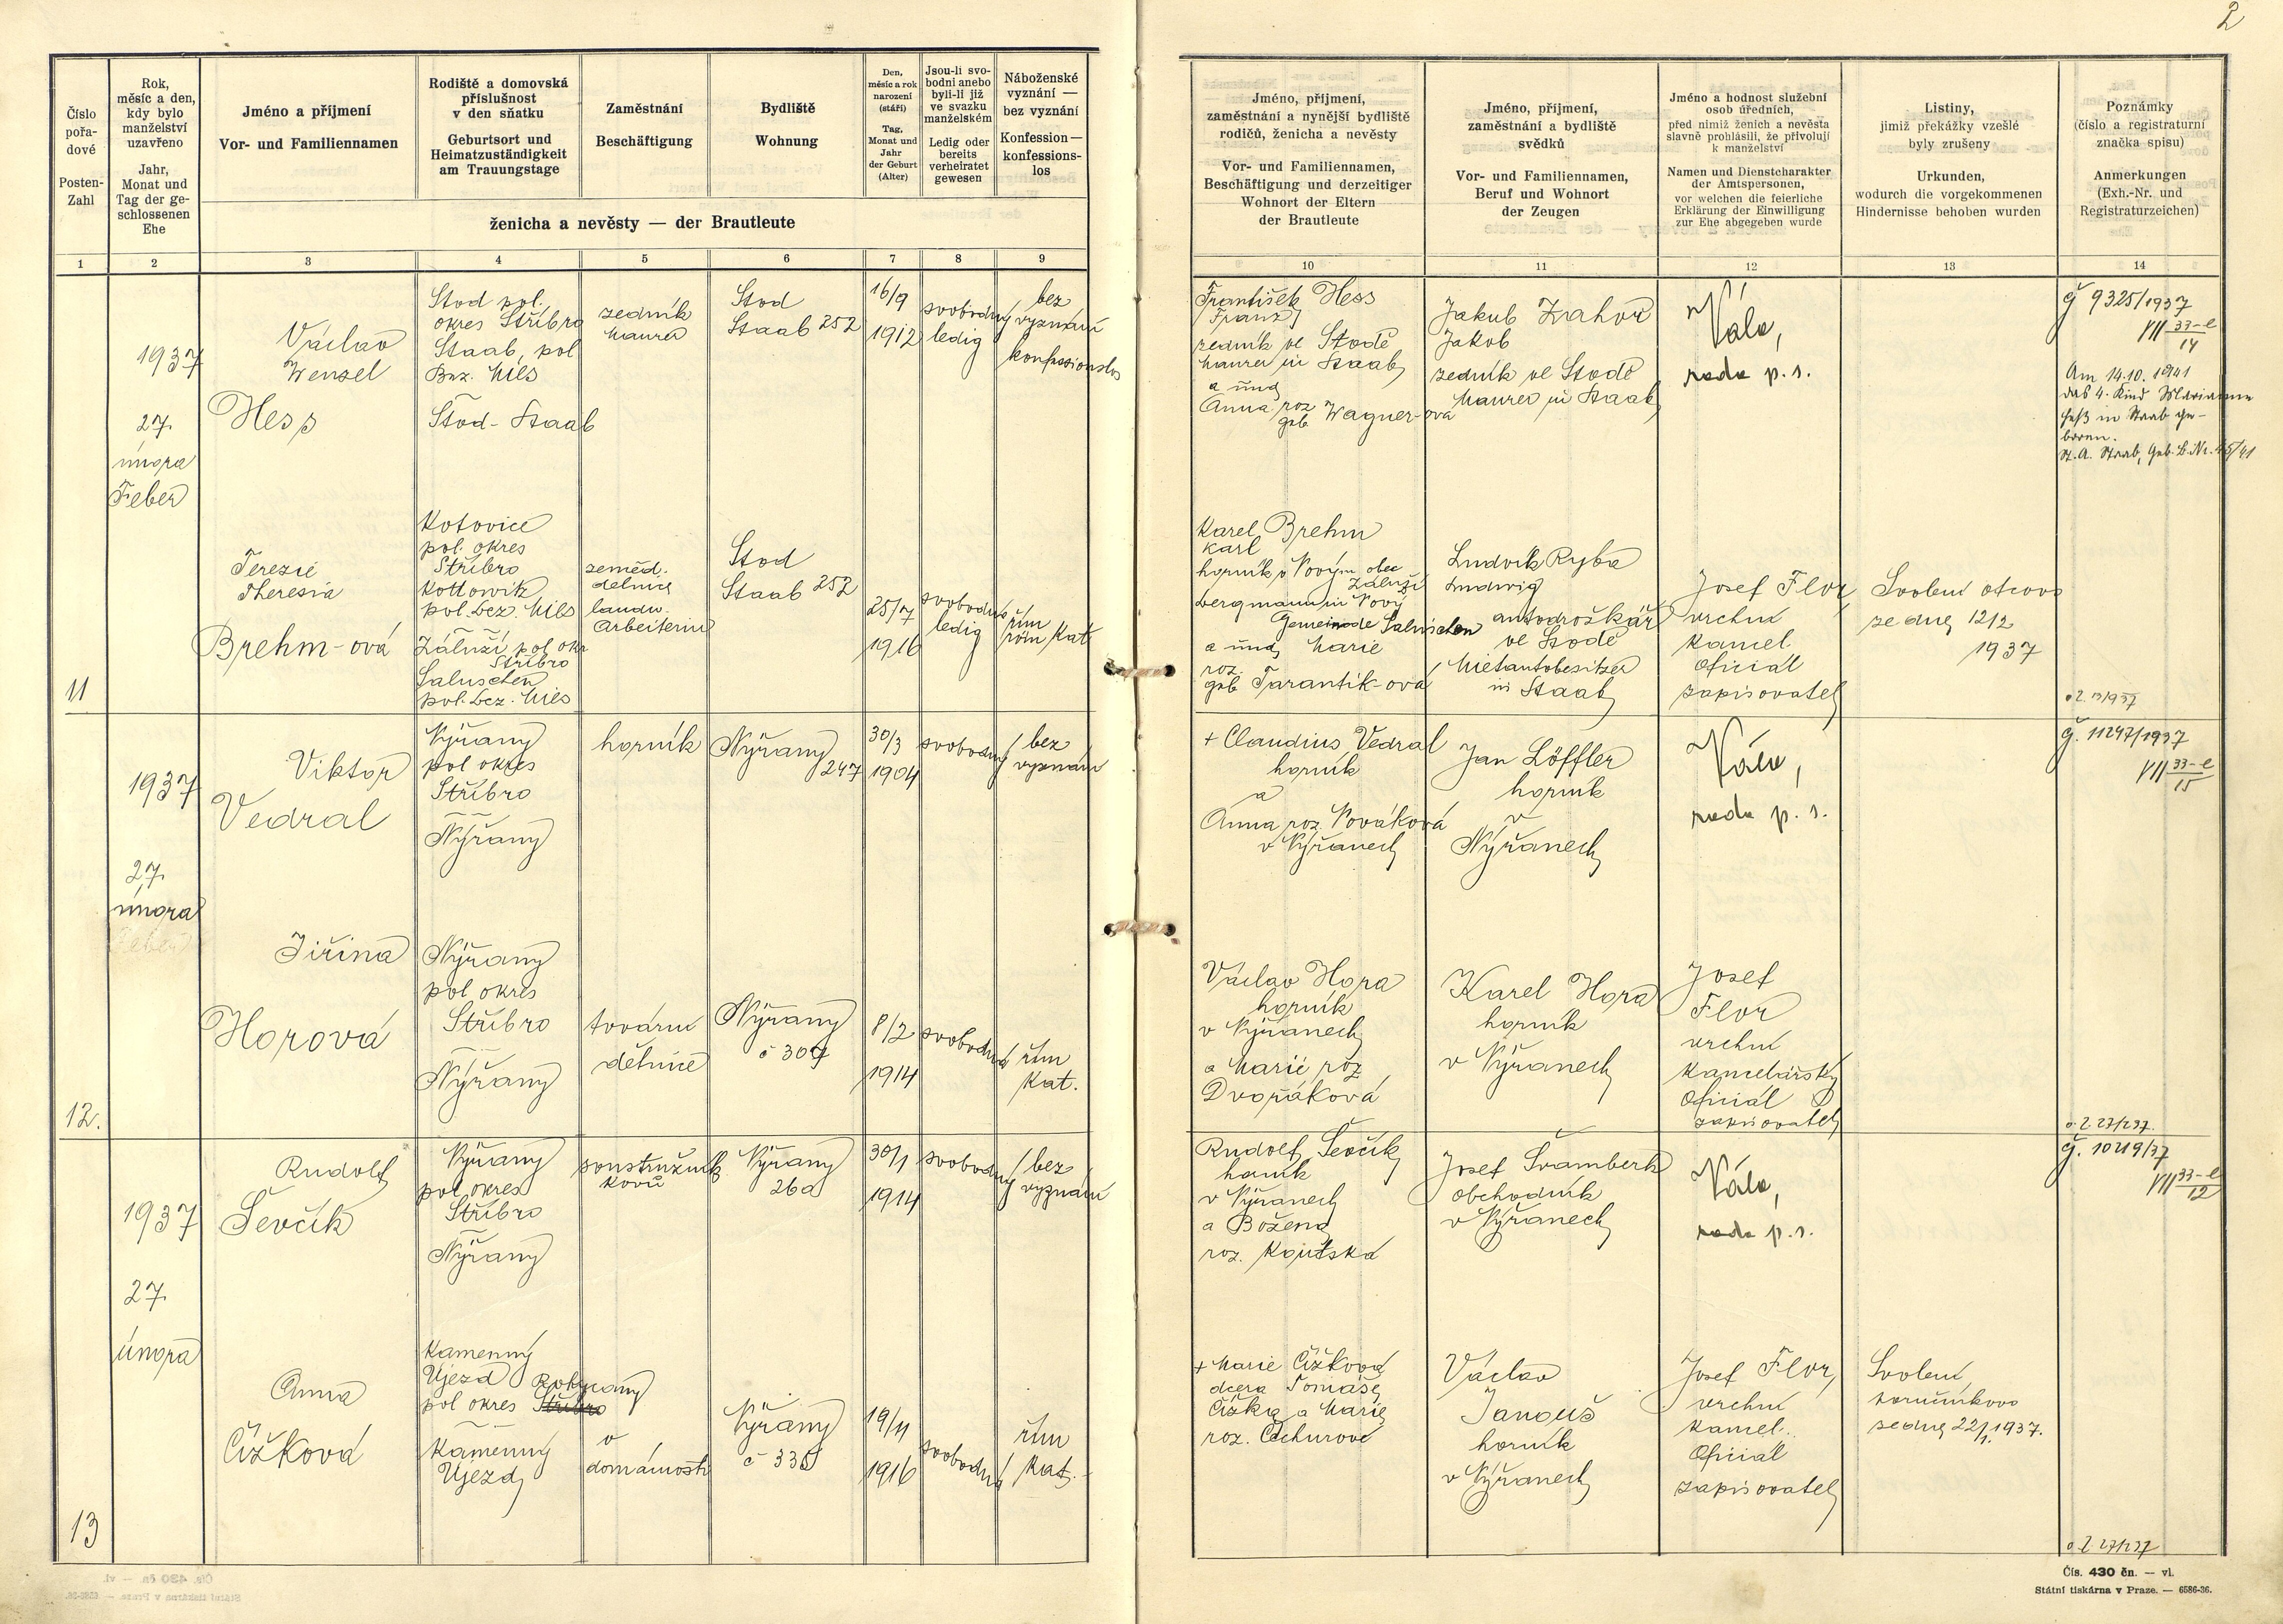 2
Číslo
pořa-
dové
Posten-
Zahl
Rok,
měsíc a den,
kdy bylo
manželství
uzavřeno
Jahr,
Monat und
Tag der ge-
schlossenen
Ehe
Jméno a příjmení
Vor- und Familiennamen
Rodiště a domovská
příslušnost
v den sňatku
Geburtsort und
Heimatzuständigkeit
am Trauungstage
Zaměstnání
Beschäftigung
Bydliště
Wohnung
Den,
měsíc a rok
narození
(stáří)
Tag,
Monat und
Jahr
der Geburt
(Alter)
Jsou-li svo-
bodni anebo
byli-li již
ve svazku
manželském
Ledig oder
bereits
verheiratet
gewesen
Náboženské
vyznání —
bez vyznání
Konfession —
konfessions-
los
ženicha a nevěsty — der Brautleute
Jméno, příjmení,
zaměstnání a nynější bydliště
rodičů, ženicha a nevěsty
Vor- und Familiennamen,
Beschäftigung und derzeitiger
Wohnort der Eltern
der Brautleute
Jméno, příjmení,
zaměstnání a bydliště
svědků
Vor- und Familiennamen,
Beruf und Wohnort
der Zeugen
Jméno a hodnost služební
osob úředních,
před nimiž ženich a nevěsta
slavně prohlásili, že přivolují
k manželství
Namen und Dienstcharakter
der Amtspersonen,
vor welchen die feierliche
Erklärung der Einwilligung
zur Ehe abgegeben wurde
Listiny,
jimiž překážky vzešlé
byly zrušeny
Urkunden,
wodurch die vorgekommenen
Hindernisse behoben wurden
Poznámky
(číslo a registraturní
značka spisu)
Anmerkungen
(Exh.-Nr. und
Registraturzeichen)
1 2 3 4 5 6 7 8 9 10 11 12 13 14
11
1937
27.
února
Feber
Václav
Wenzel
Hess
Stod pol.
okres Stříbro
Staab, pol
Bez. Mies
Stod - Staab
zedník
Maurer
Stod
Staab 252
16/9
1912
svobodný
ledig
bez
vyznání
konfessionslos
František Hess
Franz
zedník ve Stodě
Maurer in Staab
a und
Anna roz
geb Wagner-ová
Jakub Zahoř
Jakob
zedník ve Stodě
Maurer in Staab
Vála,
rada p. s.
č 9325/1937
VII 33-e
14
Am 14.10. 1941
das 4. Kind Marianne
Heß in Staab ge-
boren.
St. A. Staab, Geb. B. Nr. 45/41
Terezie
Theresia
Brehm-ová
Kotovice
pol. okres
Stříbro
Kottowik
pol. Bez. Mies
Záluží pol okr
Stříbro
Saluschen
pol. Bez. Mies
zeměd.
dělnice
landw.
Arbeiterin
Stod
Staab 252
25/7
1916
svobodná
ledig
řím
röm kat
Karel Brehm
Karl
horník v Novým obec
Záluží
Bergmann in Nový
Gemeinde Saluschen
a und Marie
roz.
geb Tarantik-ová
Ludvík Ryba
Ludwig
autodrožkář
ve Stodě
Mietautobesitzer
in Staab
Josef Flor
vrchní
kancel.
Oficiál
zapisovatel
Svolení otcovo
ze dne 12/2
1937
12.
1937
27.
února
Feber
Viktor
Vedral
Nýřany
pol okres
Stříbro
Nýřany
horník
Nýřany
247
30/3
1904
svobodný
bez
vyznání
+ Claudius Vedral
horník
a
Anna roz. Nováková
v Nýřanech
Jan Löffler
horník
v
Nýřanech
Vála,
rada p. s.
č. 11247/1937
VII 33-e
15
Jiřina
Horová
Nýřany
pol okres
Stříbro
Nýřany
tovární
dělnice
Nýřany
8/2
1914
svobodná
řím
kat.
Václav Hora
horník
v Nýřanech
a Marie roz
Dvořáková
Karel Hora
horník
v Nýřanech
Josef
Flor
vrchní
kancelářský
Oficiál
zapisovatel
13
1937
27.
února
Rudolf
Ševčík
Nýřany
pol okres
Stříbro
Nýřany
soustružník
kovů
Nýřany
30/1
1914
svobodný
bez
vyznání
Rudolf Ševčík
v Nýřanech
a Božena
roz. Koutská
Josef Švamberk
obchodník
v Nýřanech
Vála,
rada p. s.
č. 10219/37
VII 33-e
12
Anna
Čížková
Kamenný
Újezd Rokycany
pol okres Stříbro
Kamenný
Újezd
v
domácnosti
Nýřany
19/11
1916
svobodná
řím
kat.
+ Marie Čížková
dcera Tomáše
Čížka a Marie
roz. Cechurové
Václav
Janouš
horník
v Nýřanech
Josef Flor,
vrchní
kancel.
Oficiál
zapisovatel
Svolení
poručníkovo
ze dne 22/1 1937.
Čís. 430 čn. — vl.
Státní tiskárna v Praze. — 6586-36.